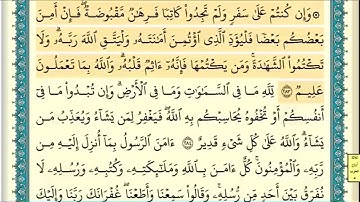 ۞ وَإِن كُنتُمْ عَلَىٰ سَفَرٍ وَلَمْ تَجِدُوا۟ كَاتِبًا فَرِهَٰنٌ مَّقْبُوضَةٌ ۖ فَإِنْ أَمِنَ
بَعْضُكُم بَعْضًا فَلْيُؤَدِّ ٱلَّذِى ٱؤْتُمِنَ أَمَٰنَتَهُۥ وَلْيَتَّقِ ٱللَّهَ رَبَّهُۥ ۗ وَلَا
تَكْتُمُوا۟ ٱلشَّهَٰدَةَ ۚ وَمَن يَكْتُمْهَا فَإِنَّهُۥٓ ءَاثِمٌ قَلْبُهُۥ ۗ وَٱللَّهُ بِمَا تَعْمَلُونَ
عَلِيمٌ ٢٨٣ لِّلَّهِ مَا فِى ٱلسَّمَٰوَٰتِ وَمَا فِى ٱلْأَرْضِ ۗ وَإِن تُبْدُوا۟ مَا فِىٓ
أَنفُسِكُمْ أَوْ تُخْفُوهُ يُحَاسِبْكُم بِهِ ٱللَّهُ ۖ فَيَغْفِرُ لِمَن يَشَآءُ وَيُعَذِّبُ مَن
يَشَآءُ ۗ وَٱللَّهُ عَلَىٰ كُلِّ شَىْءٍ قَدِيرٌ ٢٨٤ ءَامَنَ ٱلرَّسُولُ بِمَآ أُنزِلَ إِلَيْهِ مِن
رَّبِّهِۦ وَٱلْمُؤْمِنُونَ ۚ كُلٌّ ءَامَنَ بِٱللَّهِ وَمَلَٰٓئِكَتِهِۦ وَكُتُبِهِۦ وَرُسُلِهِۦ لَا
نُفَرِّقُ بَيْنَ أَحَدٍ مِّن رُّسُلِهِۦ ۚ وَقَالُوا۟ سَمِعْنَا وَأَطَعْنَا ۖ غُفْرَانَكَ رَبَّنَا وَإِلَيْكَ